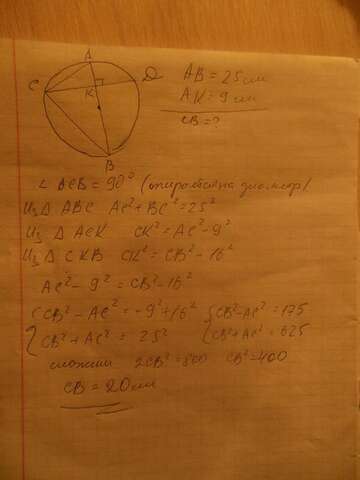 A
C
D
K
B
AB = 25 см
AK = 9 см
CB = ?
∠ ACB = 90° (опирается на диаметр)
Из Δ ABC AC² + BC² = 25²
Из Δ ACK CK² = AC² - 9²
Из Δ CKB CK² = CB² - 16²
AC² - 9² = CB² - 16²
{ CB² - AC² = -9² + 16² { CB² - AC² = 175
{ CB² + AC² = 25² { CB² + AC² = 625
сложим 2CB² = 800 CB² = 400
CB = 20 см